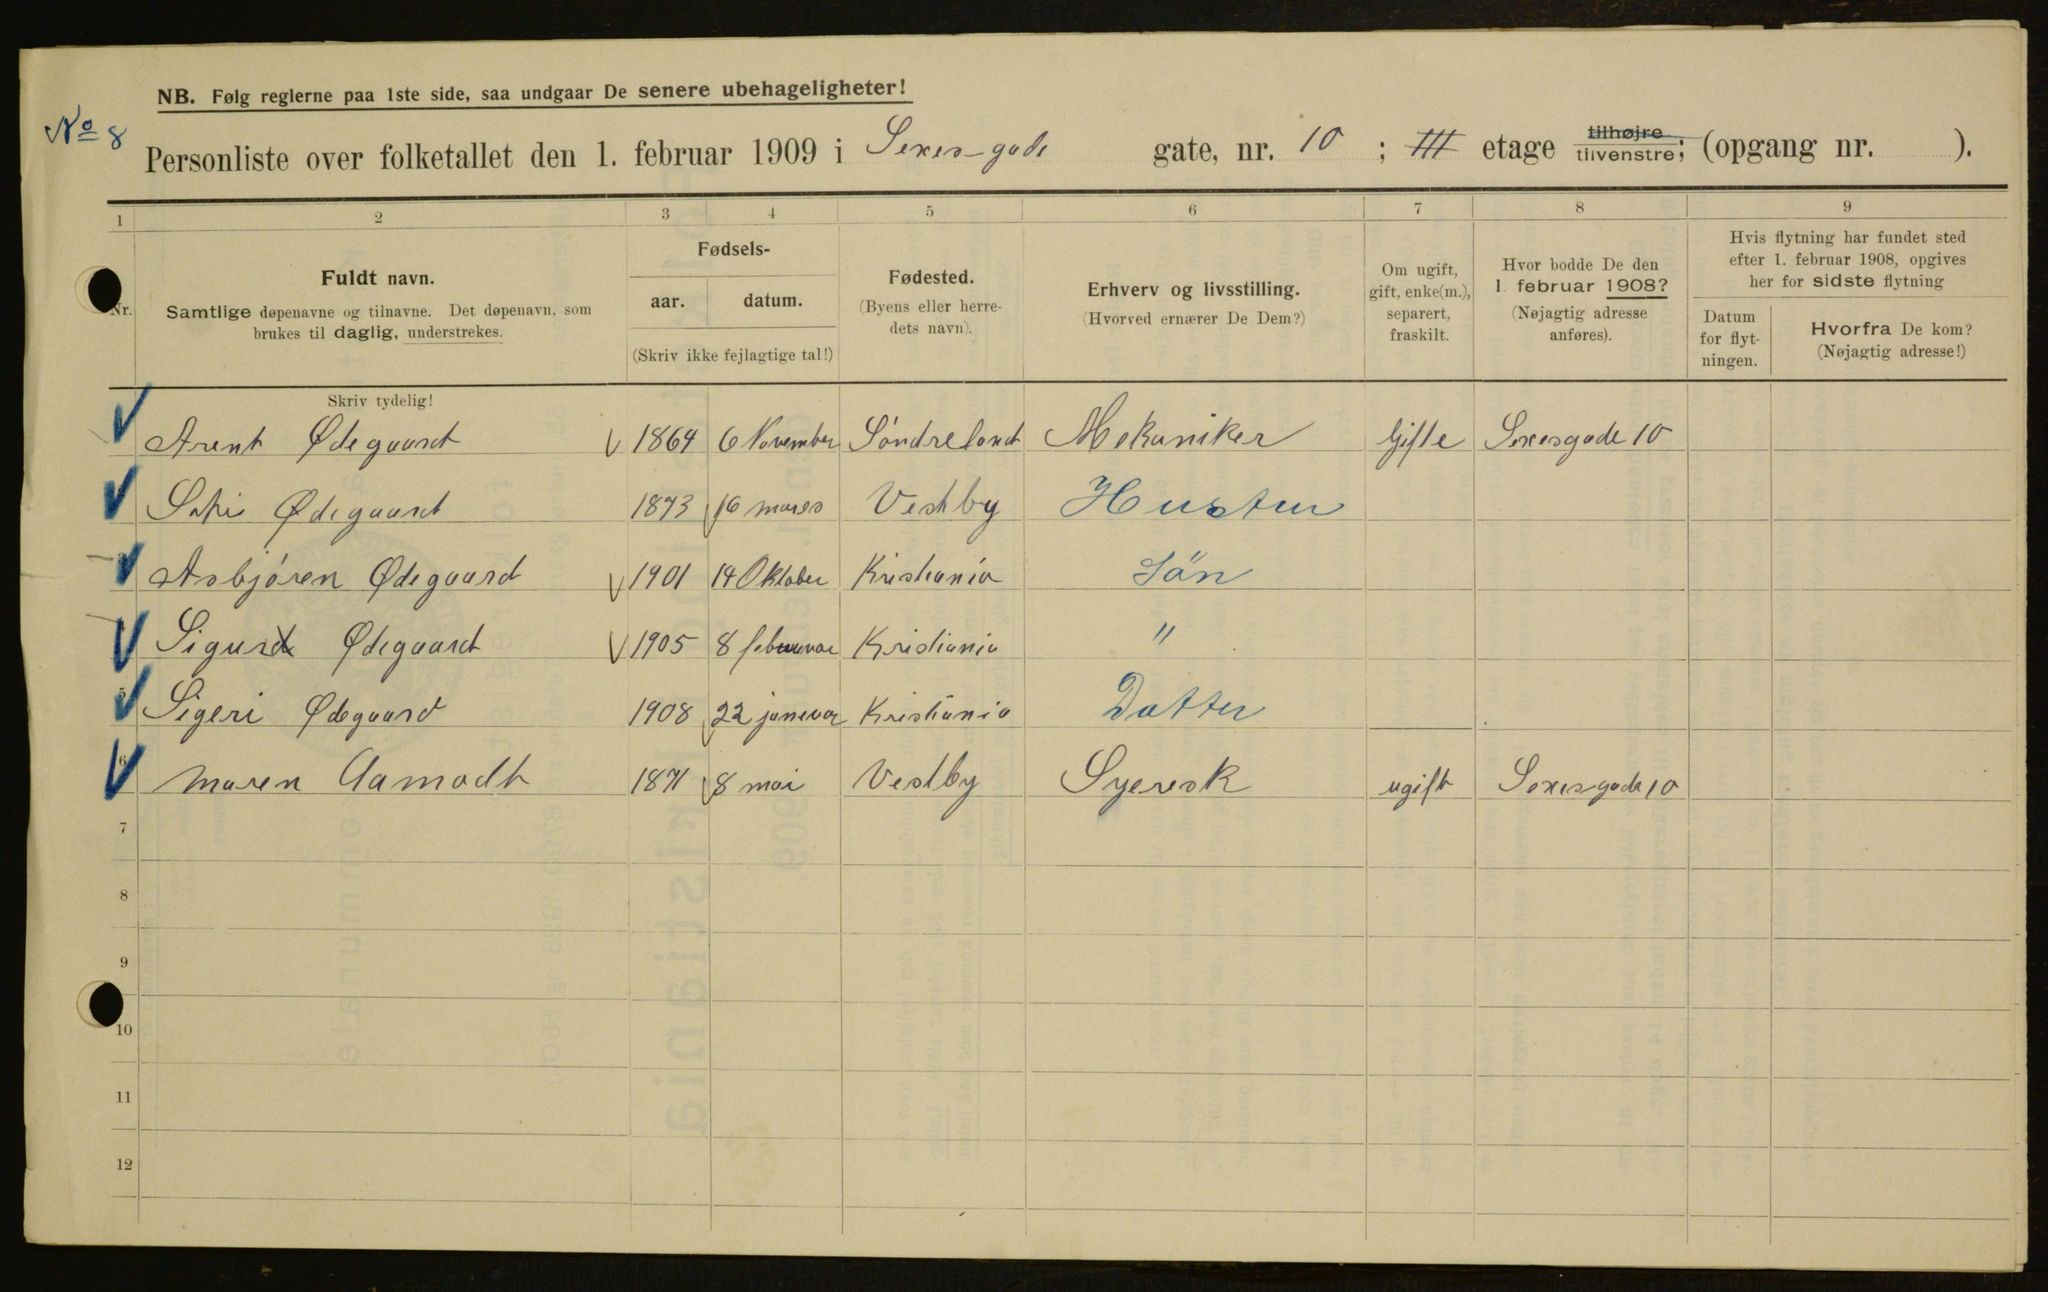 NB. Følg reglerne paa 1ste side, saa undgaar De senere ubehageligheter!
No 8
Personliste over folketallet den 1. februar 1909 i Sexes-gade gate, nr. 10 ; III etage tilhøjre tilvenstre; (opgang nr. ).
1 2 3 4 5 6 7 8 9
Nr.
Fuldt navn.
Samtlige døpenavne og tilnavne. Det døpenavn, som
brukes til daglig, understrekes.
Fødsels-
aar. datum.
(Skriv ikke fejlagtige tal!)
Fødested.
(Byens eller herre-
dets navn).
Erhverv og livsstilling.
(Hvorved ernærer De Dem?)
Om ugift,
gift, enke(m.),
separert,
fraskilt.
Hvor bodde De den
1. februar 1908?
(Nøjagtig adresse
anføres).
Hvis flytning har fundet sted
efter 1. februar 1908, opgives
her for sidste flytning
Datum
for flyt-
ningen.
Hvorfra De kom?
(Nøjagtig adresse!)
Skriv tydelig!
Arent Ødegaard 1864 6 November Söndreland Mekaniker Gifte Sexesgade 10
Ødegaard 1873 16 mares Vestby Hustru
Asbjören Ødegaard 1901 14 Oktober Kristiania Sön
Sigurd Ødegaard 1905 8 februar Kristiania "
5 Sigeri Ødegaard 1908 22 janevar Kristiania Datter
6 Maren Aamodt 1871 8 mai Vestby Syersk ugift Sexesgade 10
7
8
9
10
11
12